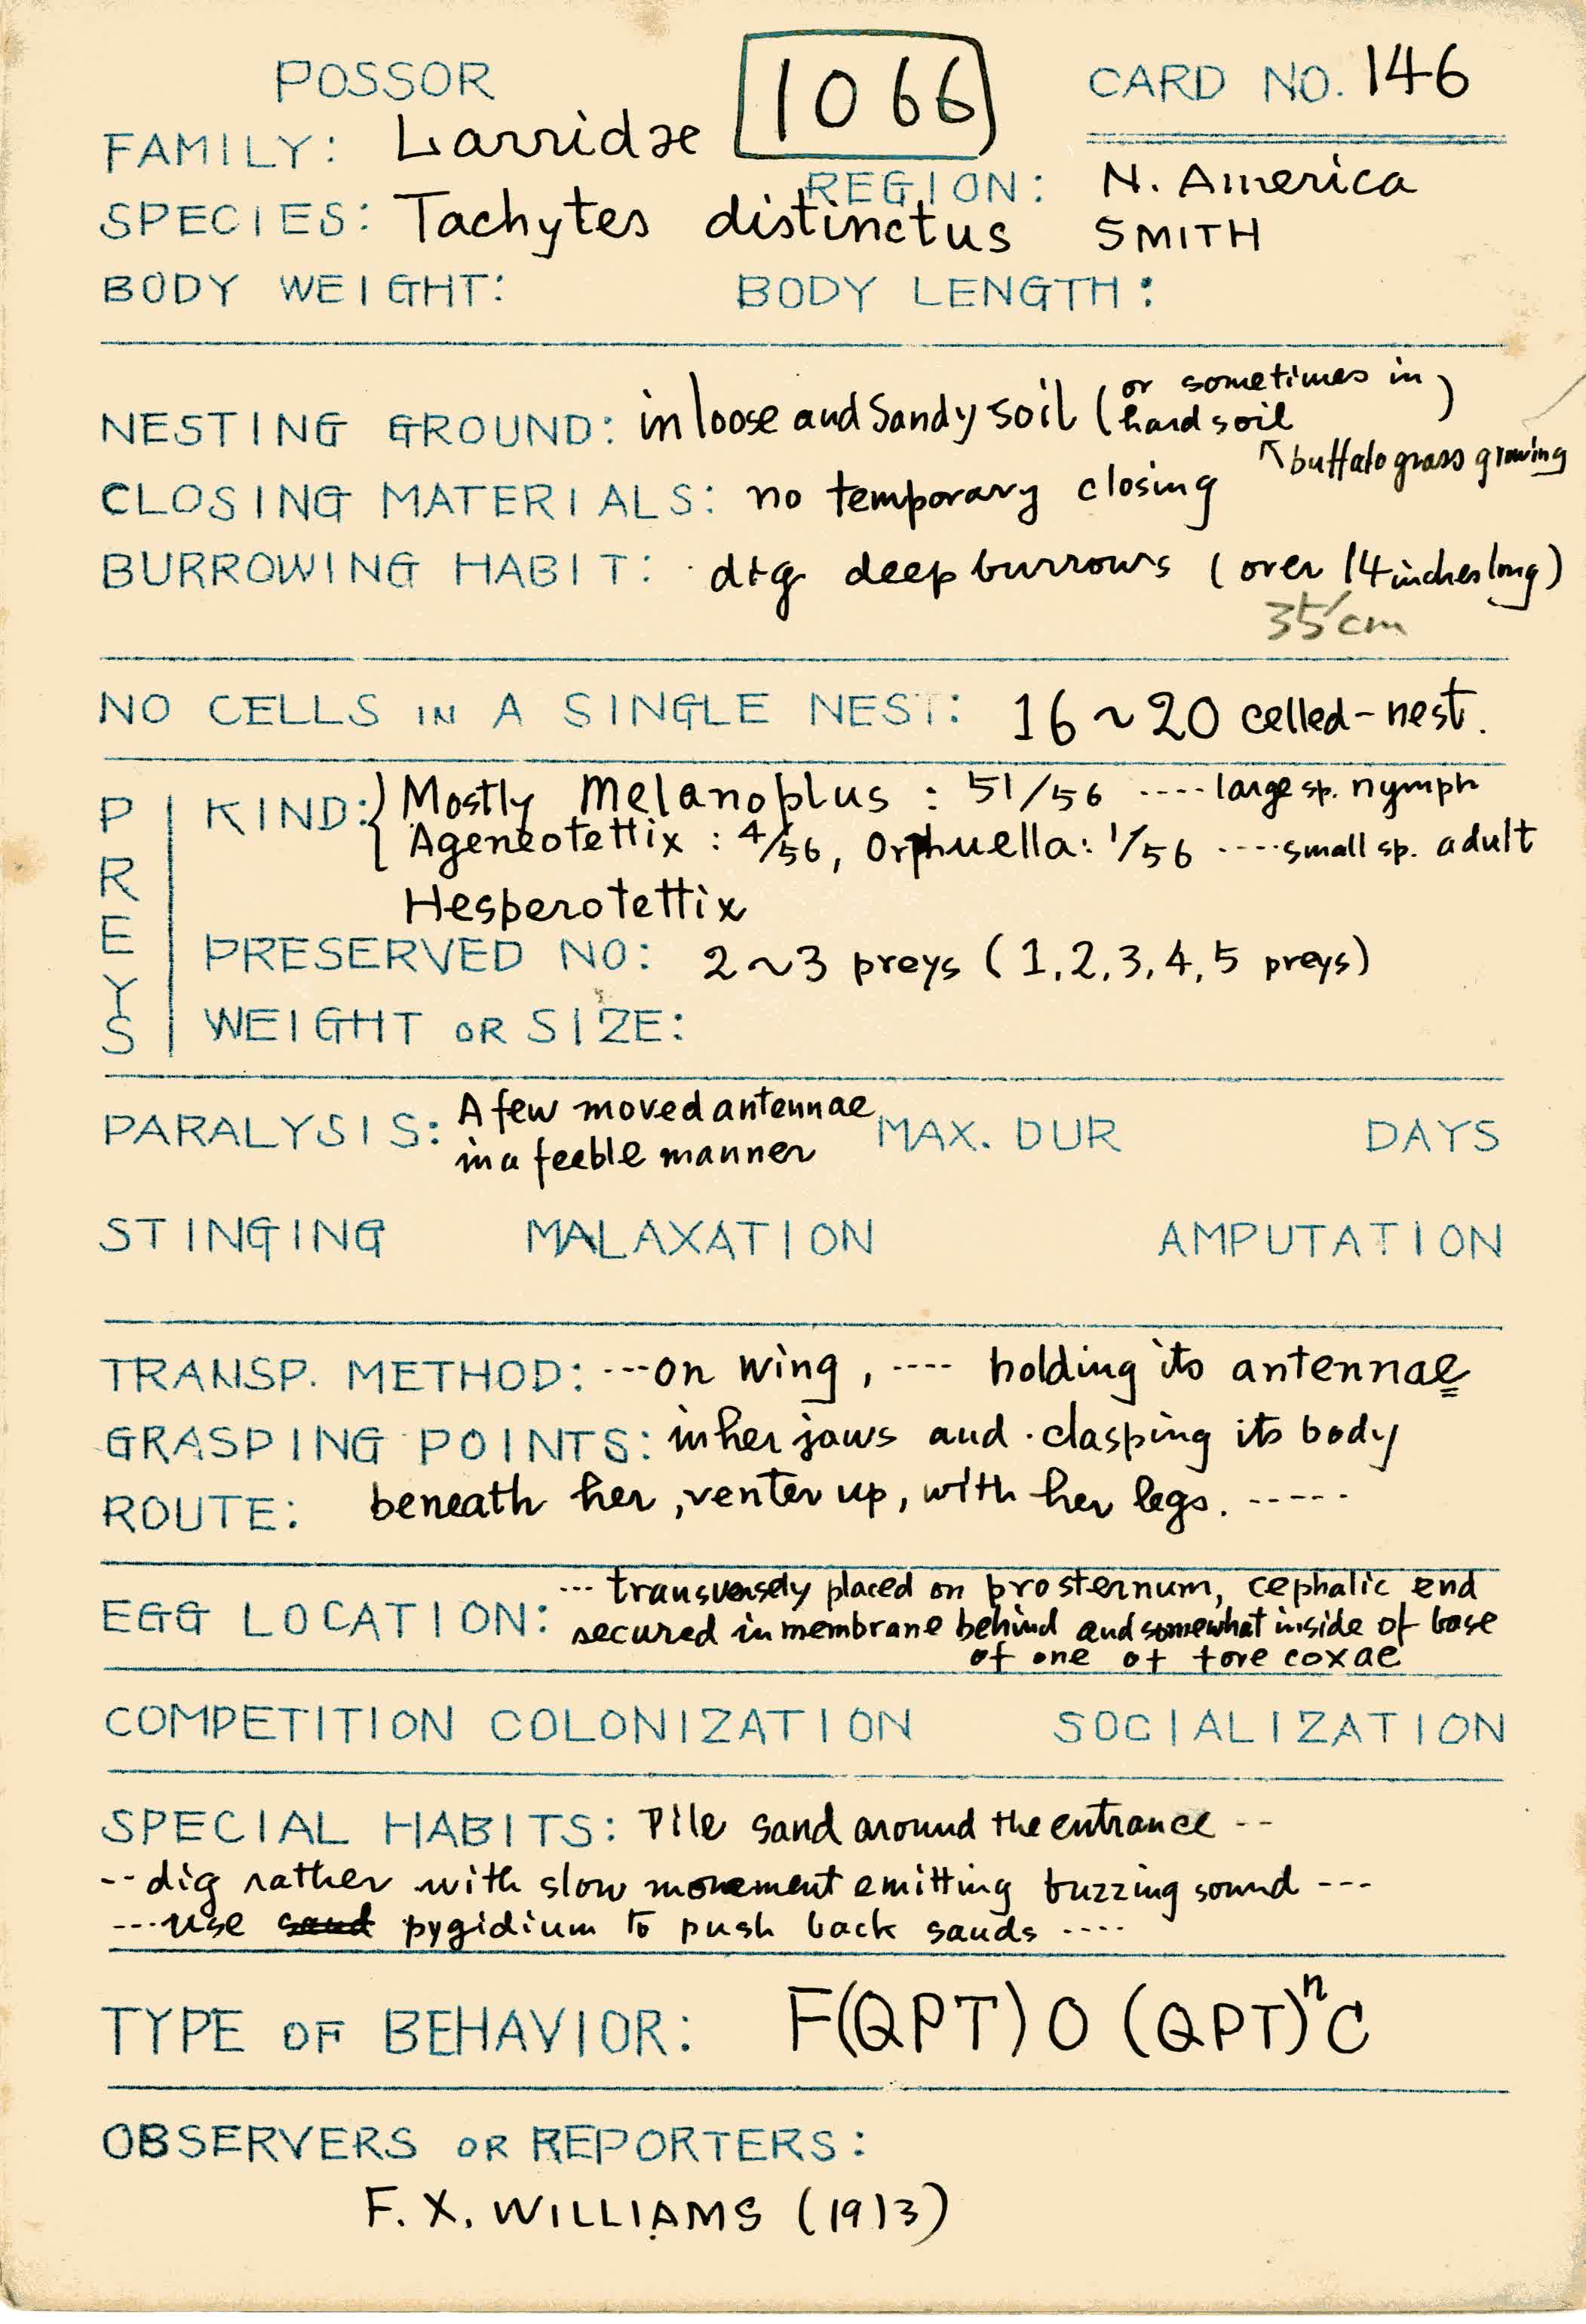 POSSOR
1066
CARD NO. 146
FAMILY: Larridae
REGION: N. America
SPECIES: Tachytes distinctus SMITH
BODY WEIGHT: BODY LENGTH:
NESTING GROUND: in loose and sandy soil (or sometimes in hard soil)
↖buffalo grass growing
CLOSING MATERIALS: no temporary closing
BURROWING HABIT: dig deep burrows (over 14 inches long)
35 cm
NO CELLS IN A SINGLE NEST: 16~20 celled-nest.
PREYS
KIND: Mostly Melanoplus : 51/56 ---- large sp. nymph
Ageneotettix : 4/56, Orphuella: 1/56 ---- small sp. adult
Hesperotettix
PRESERVED NO: 2~3 preys (1,2,3,4,5 preys)
WEIGHT OR SIZE:
PARALYSIS: A few moved antennae in a feeble manner MAX. DUR DAYS
STINGING MALAXATION AMPUTATION
TRANSP. METHOD: ---on wing, ---- holding its antennae
GRASPING POINTS: in her jaws and clasping its body
ROUTE: beneath her, venter up, with her legs. -----
EGG LOCATION: --- transversely placed on prosternum, cephalic end
secured in membrane behind and somewhat inside of base
of one of fore coxae
COMPETITION COLONIZATION SOCIALIZATION
SPECIAL HABITS: Pile sand around the entrance --
--dig rather with slow movement emitting buzzing sound ---
---use sand pygidium to push back sands ----
TYPE OF BEHAVIOR: F(QPT)O(QPT)ⁿC
OBSERVERS OR REPORTERS:
F. X. WILLIAMS (1913)